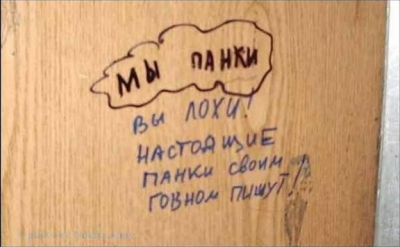 МЫ ПАНКИ
ВЫ ЛОХИ!
НАСТОЯЩИЕ
ПАНКИ СВОИМ
ГОВНОМ ПИШУТ!